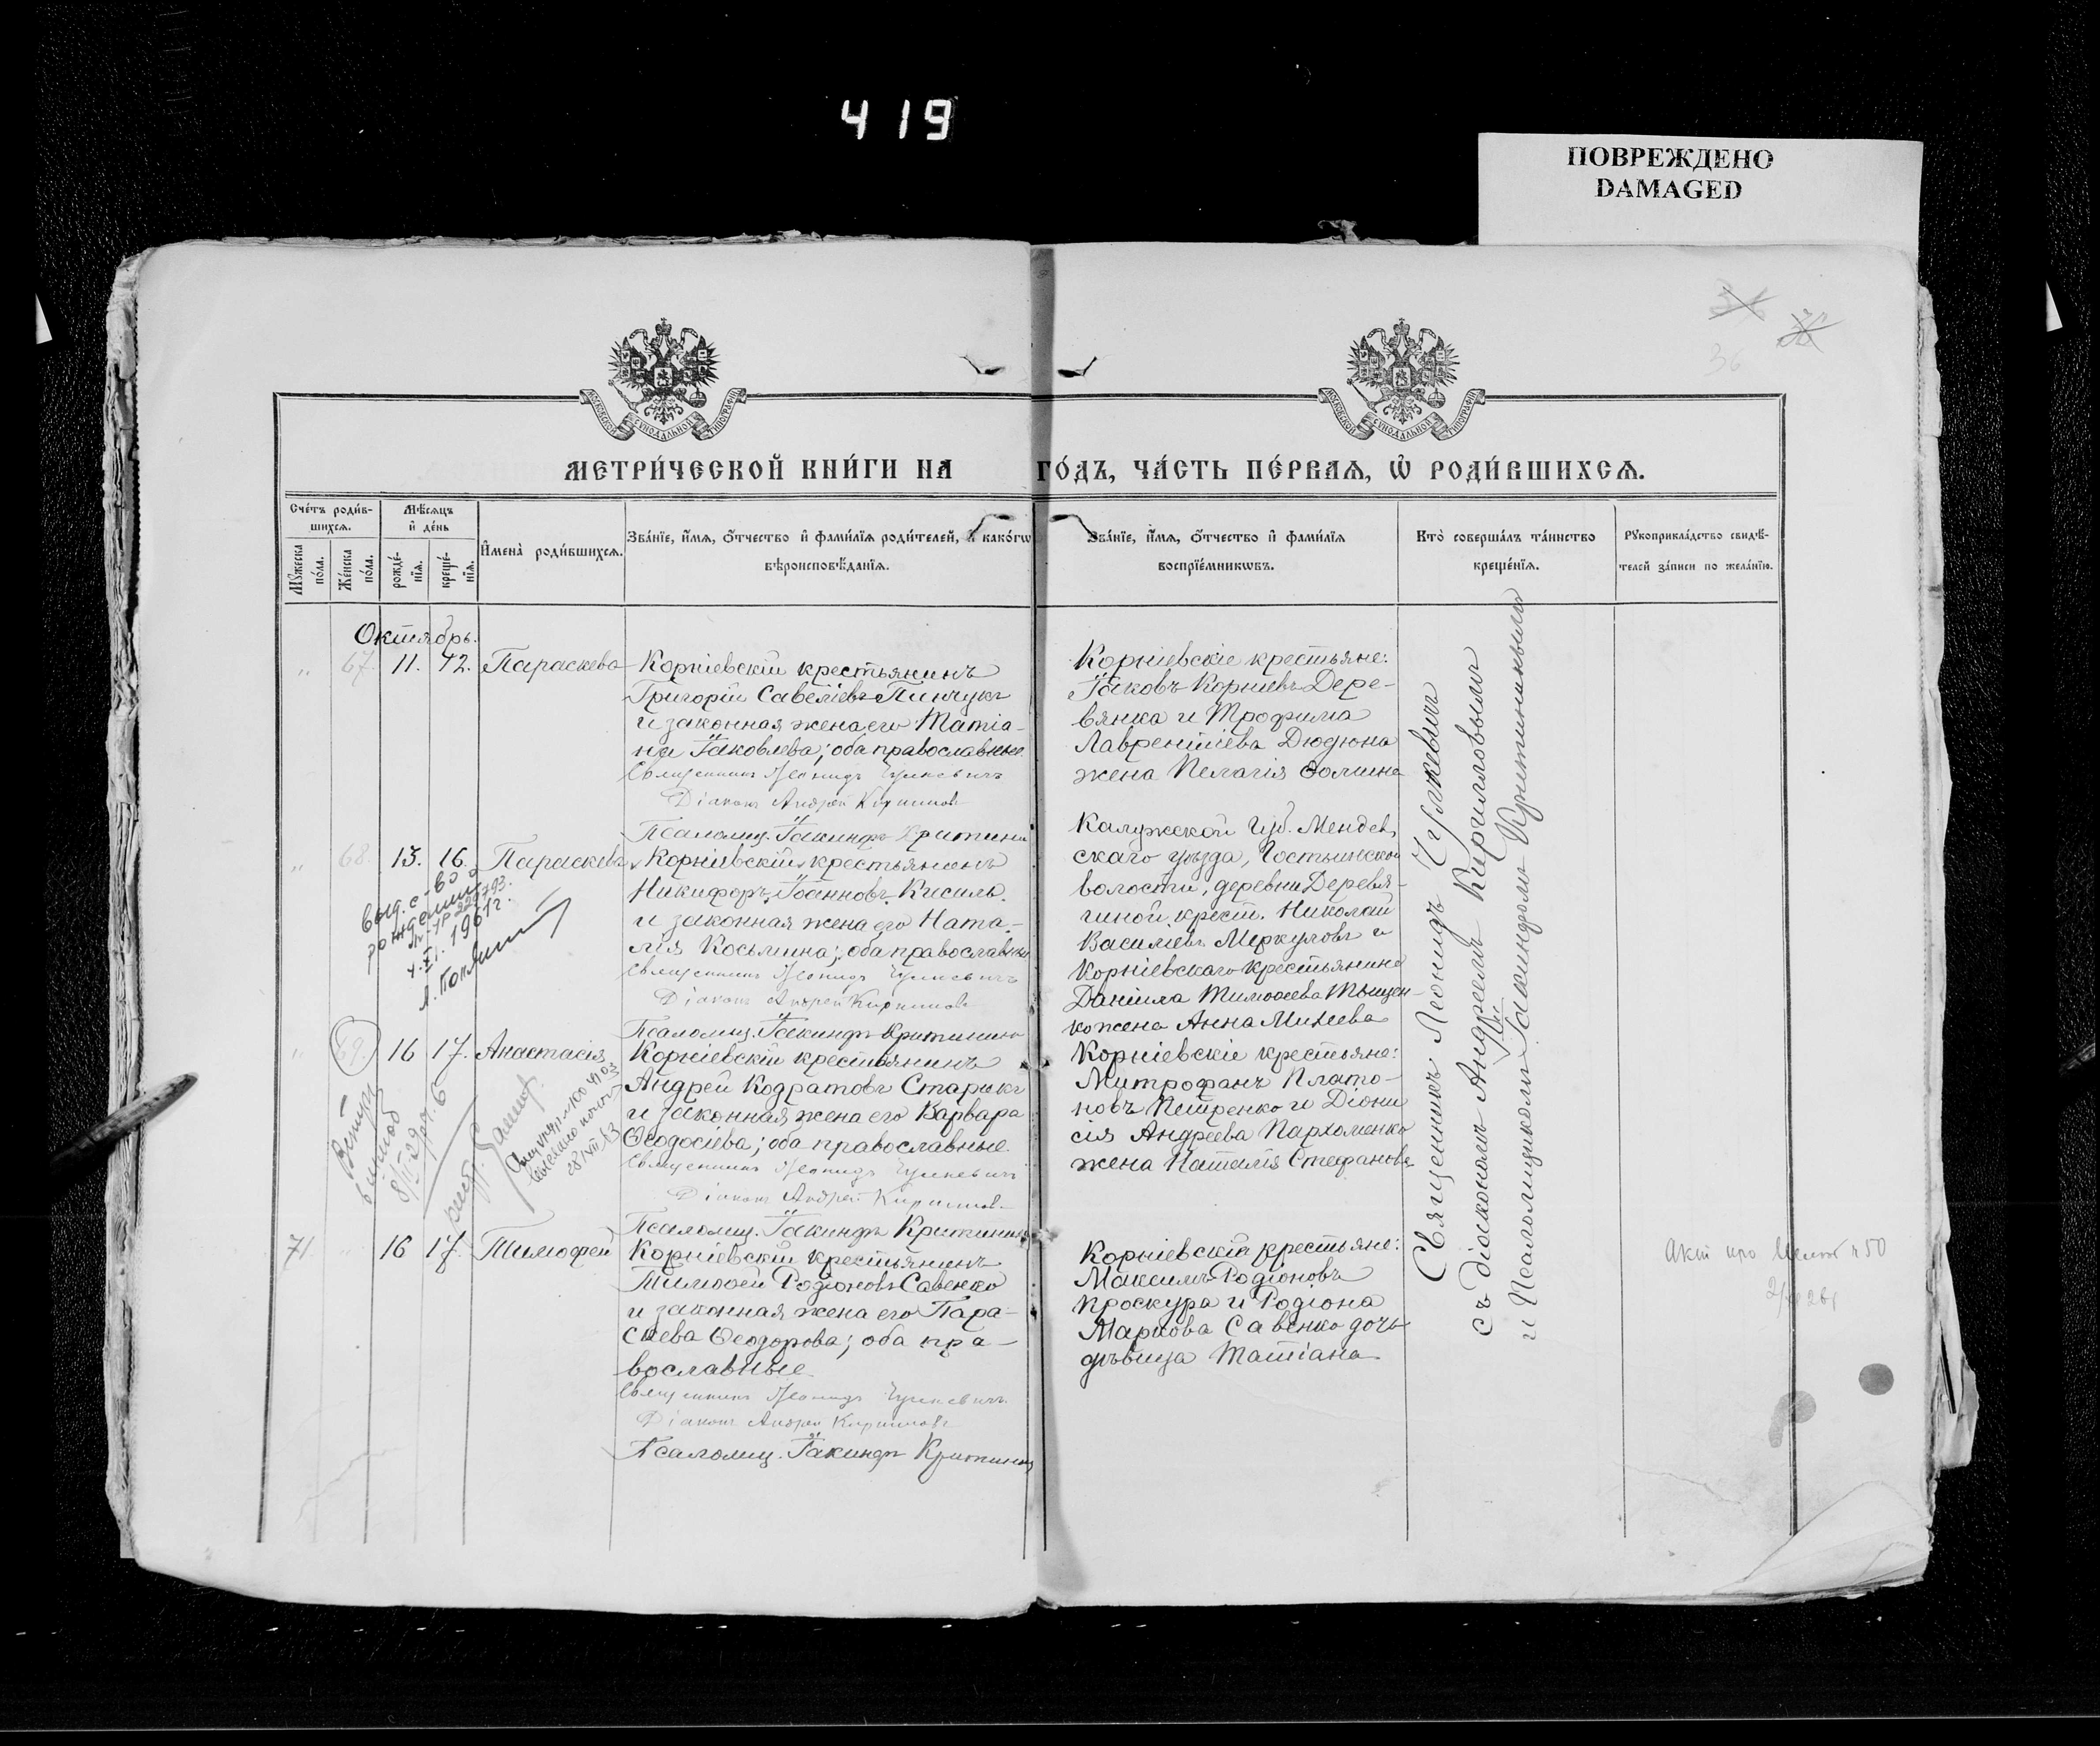 419
ПОВРЕЖДЕНО
DAMAGED
36
МЕТРИ́ЧЕСКОЙ КНИ́ГИ НА ГО́ДЪ, ЧА́СТЬ ПЕ́РВАѦ, Ѽ РОДИ́ВШИХСѦ.
Сче́тъ роди́в-
шихсѧ.
Мѣ́сѧцъ
и҆ де́нь
Мꙋжеска
по́ла.
Же́нска
по́ла.
рожде́-
нїѧ.
креще́-
нїѧ.
И҆мена̀ роди́вшихсѧ.
Зва́нїе, и҆́мѧ, о҆́тчество и҆ фами́лїѧ роди́телей, и҆ како́гѡ
вѣроисповѣ́данїѧ.
Зва́нїе, и҆́мѧ, о҆́тчество и҆ фами́лїѧ
воспрїе́мникѡвъ.
Кто̀ соверша́лъ та́инство
креще́нїѧ.
Рꙋкоприкла́дство свидѣ́-
телей за́писи по жела́нїю.
Октябрь.
" 67. 11. 12. Параскева
Корніевскій крестьянинъ
Григорій Савеліевъ Пинчукъ
и законная жена его Татіа-
на Іаковлева; оба православные.
Священникъ Леонидъ Чулкевичъ
Діаконъ Андрей Кирилловъ
Псаломщ. Іакинфъ Критинин
Корніевскіе крестьяне:
Іаковъ Корніевъ Дере-
вянка и Трофима
Лаврентіева Дюдюна
жена Пелагія Ѳомина
" 68. 13. 16. Параскева
Корніевскій крестьянинъ
Никифоръ Іоанновъ Кисиль
и законная жена его Ната-
лія Косьмина; оба православные
Священникъ Леонидъ Чулкевичъ
Діаконъ Андрей Кирилловъ
Псаломщ. Іакинфъ Критинин
Калужской губ. Мендев,
скаго уѣзда, Гостынской
волости, деревни Деревя-
гиной, крест. Николай
Василіевъ Меркуловъ и
Корніевскаго крестьянина
Даніила Тимоѳеева Тыщен-
ко жена Анна Михеева
выд. с-во о
рождении
4.XI.1961г.
" 69. 16 17. Анастасія
Корніевскій крестьянинъ
Андрей Кодратовъ Старикъ
и законная жена его Варвара
Ѳеодосіева; оба православные.
Священникъ Леонидъ Чулкевичъ
Діаконъ Андрей Кирилловъ
Псаломщ. Іакинфъ Критинин
Корніевскіе крестьяне:
Митрофанъ Плато-
новъ Петренко и Діони
сія Андреева Пархоменко
жена Наталія Стефанова
71. " 16 17. Тимофей
Корніевскій крестьянинъ
Тимоѳей Родіоновъ Савенко
и законная жена его Пара-
скева Ѳеодорова; оба пра-
вославные
Священникъ Леонидъ Чулкевичъ
Діаконъ Андрей Кирилловъ
Псаломщ. Іакинфъ Критинин
Корніевскій крестьяне:
Максимъ Родіоновъ
Проскура и Родіона
Маркова Савенко дочь
дѣвица Татіана
Священникъ Леонидъ Чулкевичъ
съ діакономъ Андреемъ Кирилловымъ
и Псаломщикомъ Іакинфомъ Критининымъ
Акт про